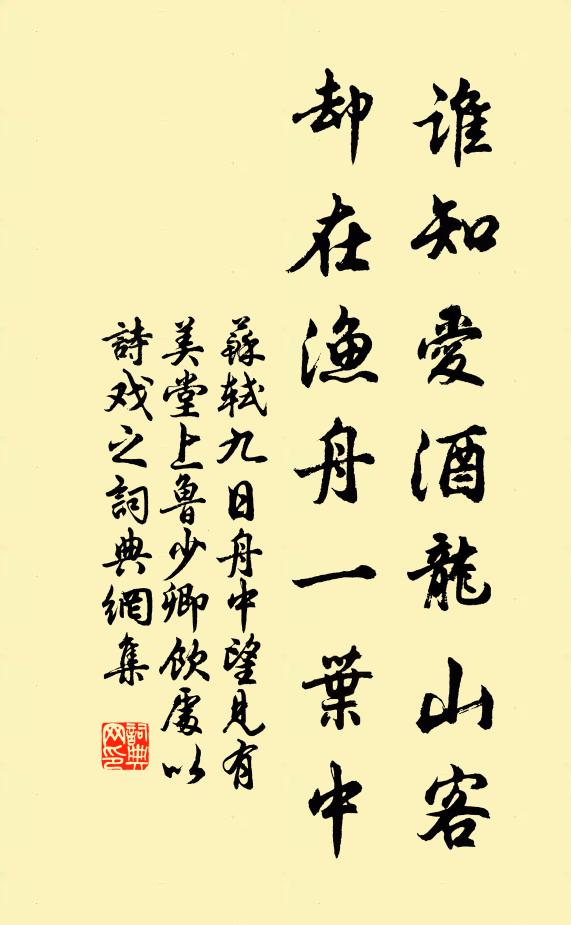 誰知愛酒龍山客
却在漁舟一葉中
蘇軾九日舟中望見有
美堂上魯少卿飲處以
詩戏之詞典網集
詞典
网印